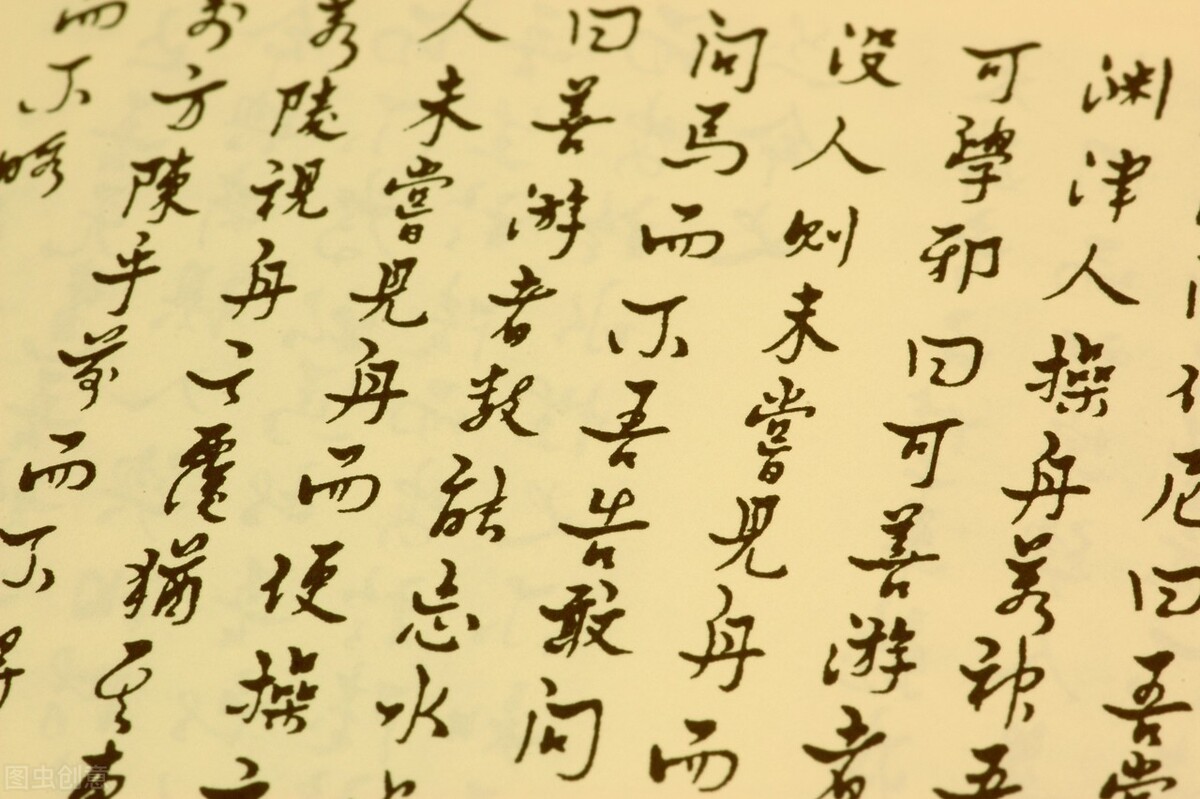 尼曰吾嘗
淵津人操舟若神吾
可學邪曰可善游者
没人則未嘗見舟而
問焉而不吾告敢問
曰善游者數能忘水
人未嘗見舟而便操之
若陵視舟之覆猶其車
萬方陳乎前而不得
而不暇
图虫创意